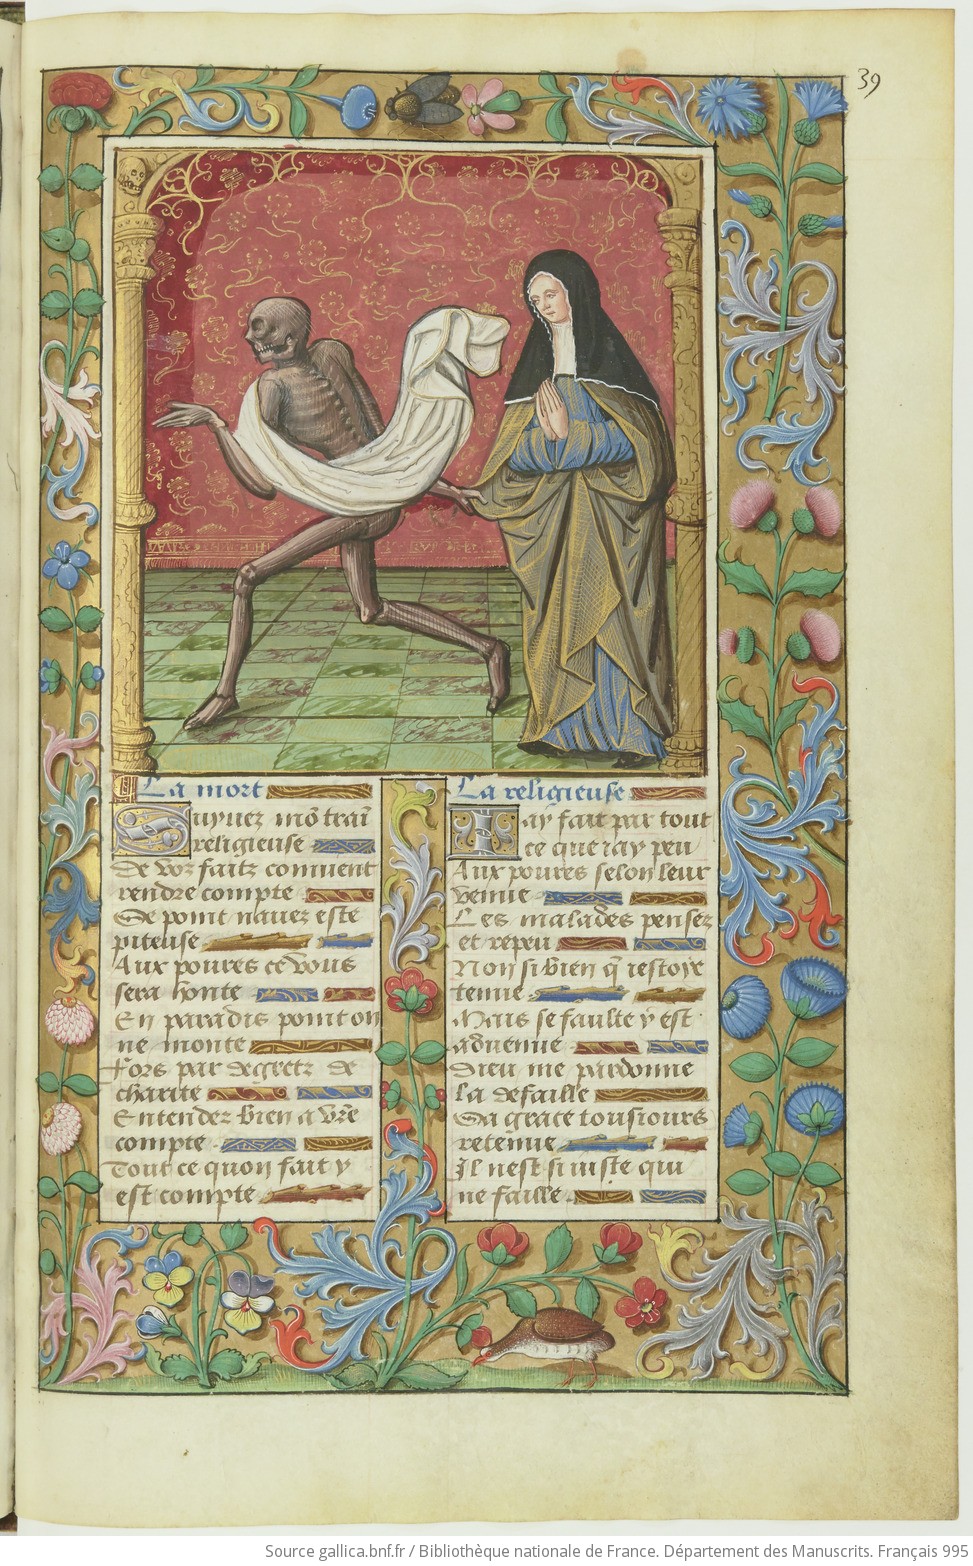 39
La mort
Suyuez mō trai
religieuse
De voz faitz comment
rendre compte
Se point nauez este
piteuse
Aux poures ce vous
sera honte
En paradis point on
ne monte
Fors par degretz de
charite
Entendez bien a vr̄e
compte
Tout ce quon fait y
est compte
La religieuse
Jay fait par tout
ce que iay peu
Aux poures selon leur
venue
Les malades pensez
et repeu
Non si bien q̄ iestoye
tenue
Mais se faulte y est
aduenue
Dieu me pardonne
la defaille
Sa grace tousiours
retenue
Il nest si iuste qui
ne faille
Source gallica.bnf.fr / Bibliothèque nationale de France. Département des Manuscrits. Français 995